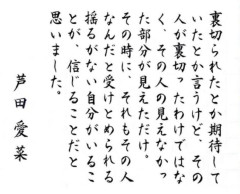 裏切られたとか期待して
いたとか言うけど、その
人が裏切ったわけではな
く、その人の見えなかっ
た部分が見えただけ。
その時に、それもその人
なんだと受けとめられる
揺るがない自分がいるこ
とが、信じることだと
思いました。
芦田愛菜